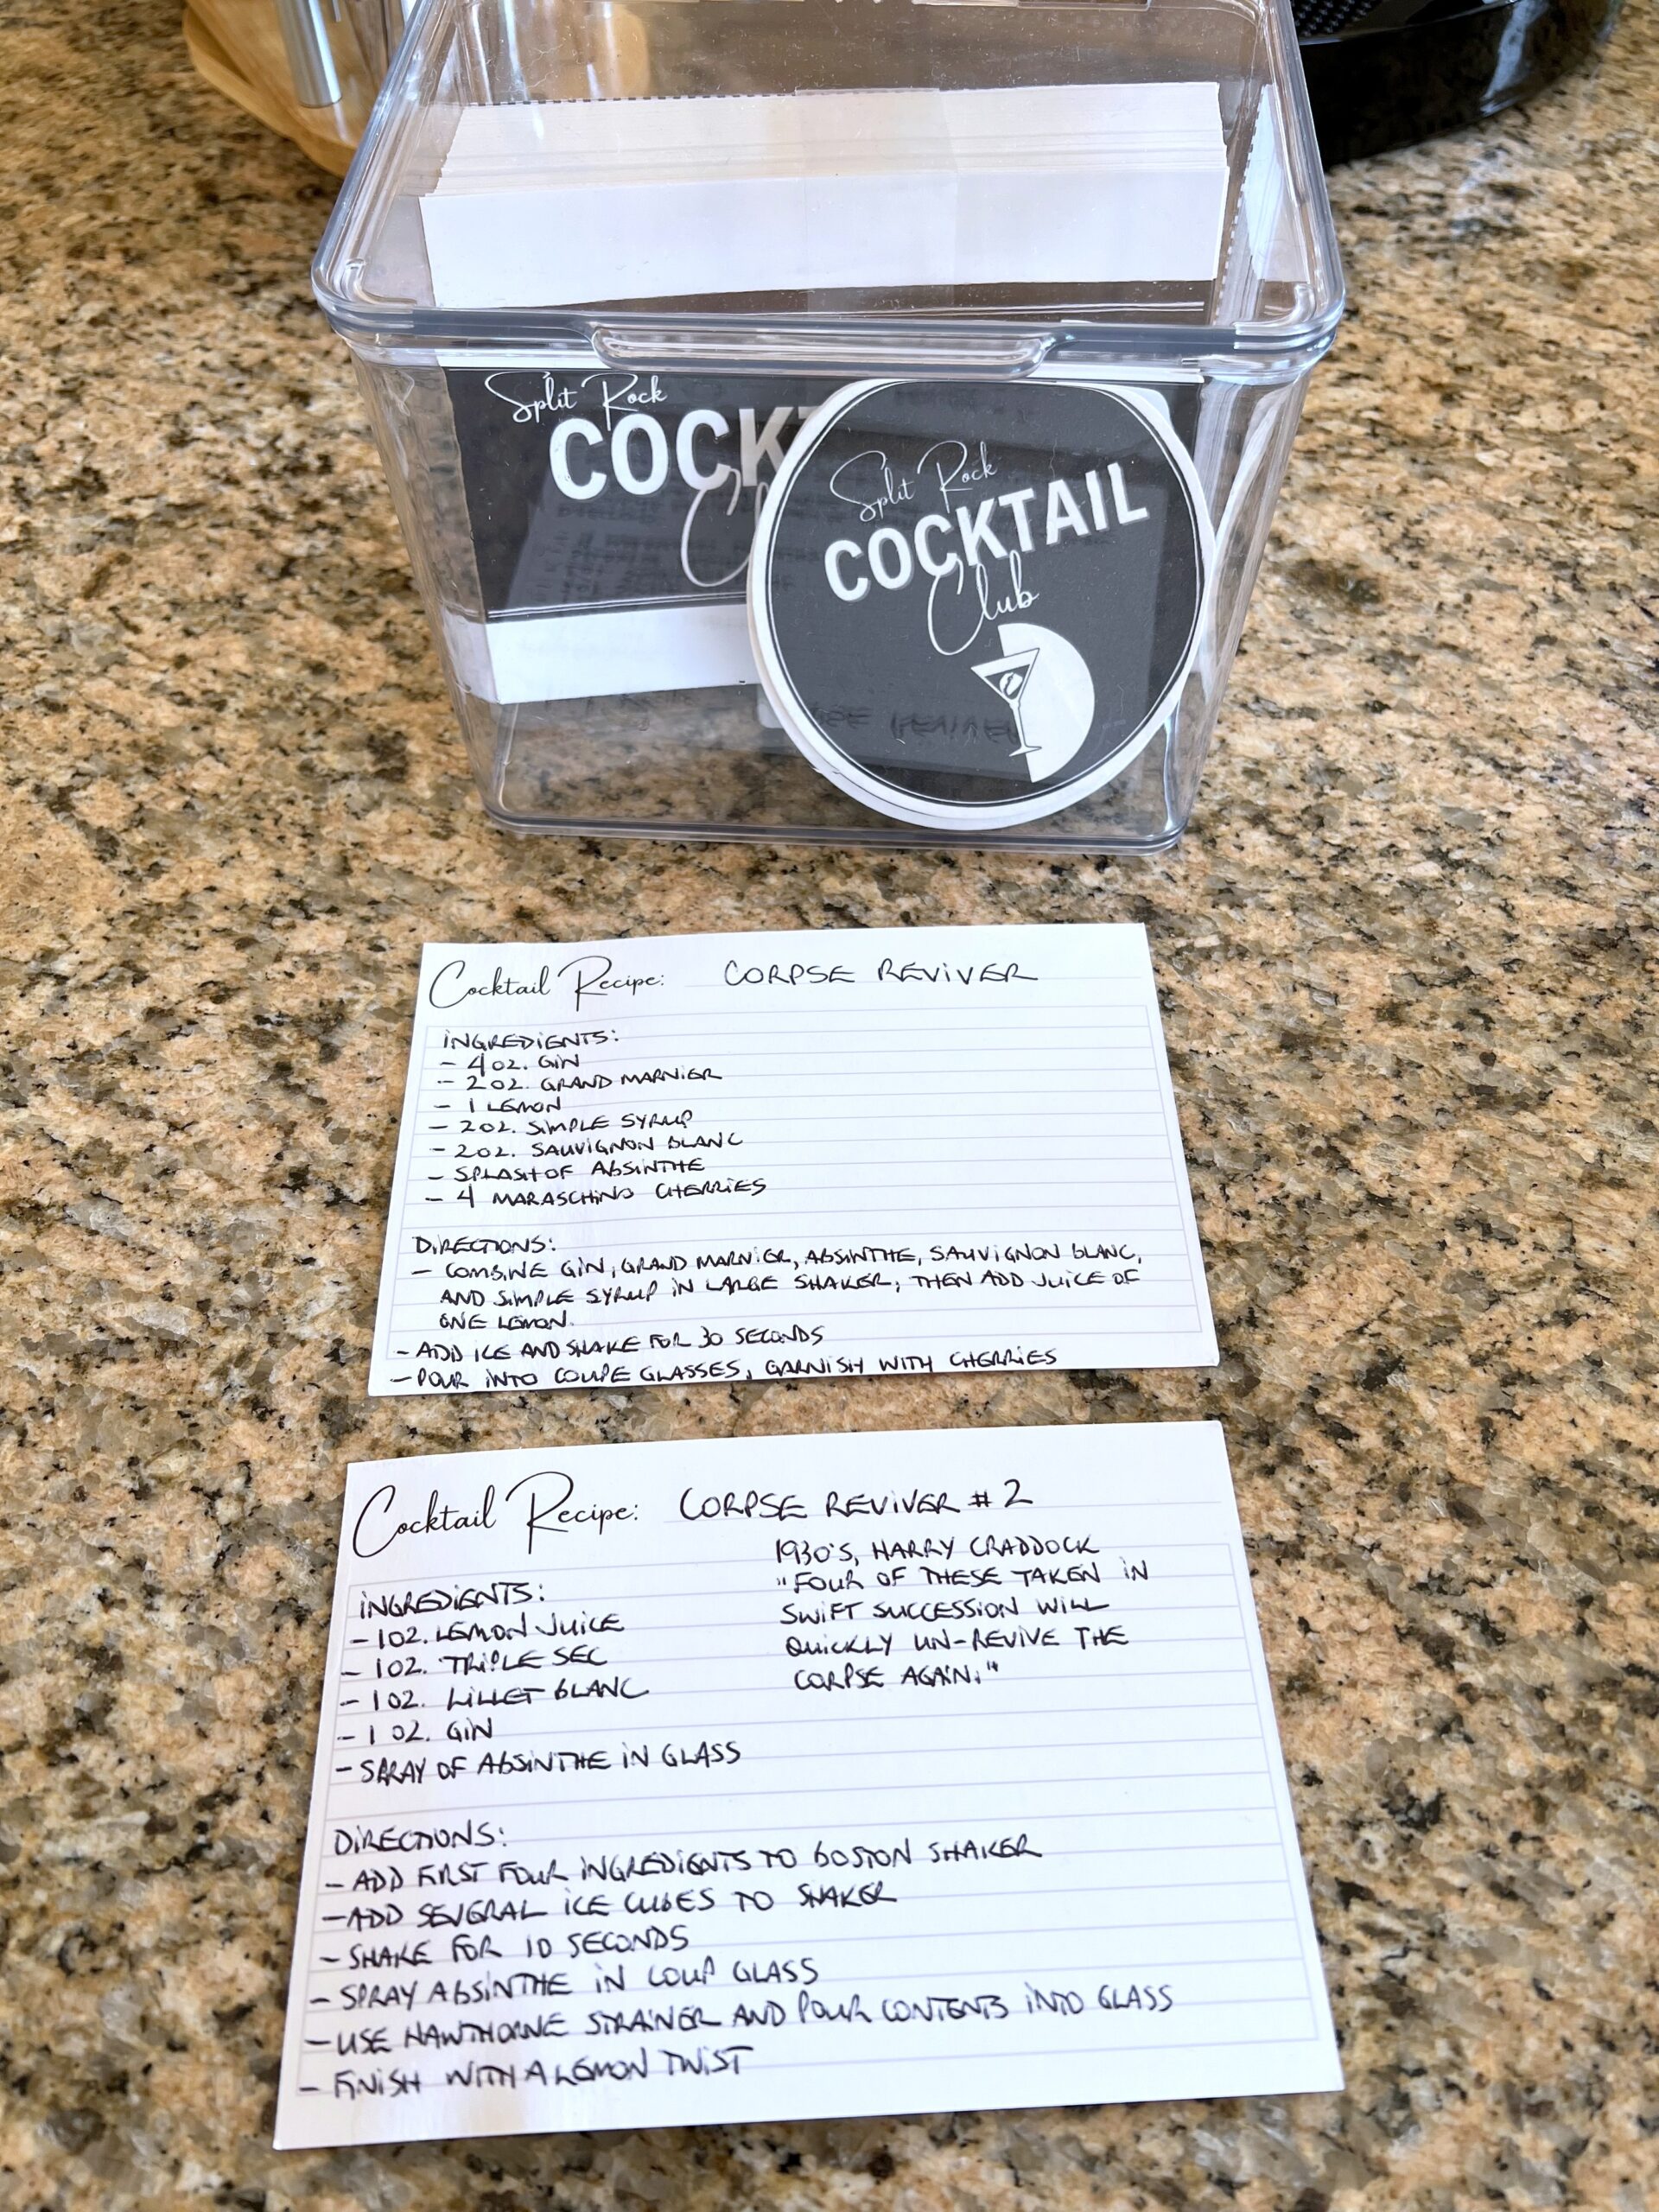 Split Rock
COCK
Cl
Split Rock
COCKTAIL
Club
Cocktail Recipe: CORPSE REVIVER
INGREDIENTS:
- 4 OZ. GIN
- 2 OZ. GRAND MARNIER
- 1 LEMON
- 2 OZ. SIMPLE SYRUP
- 2 OZ. SAUVIGNON BLANC
- SPLASH OF ABSINTHE
- 4 MARASCHINO CHERRIES
DIRECTIONS:
- COMBINE GIN, GRAND MARNIER, ABSINTHE, SAUVIGNON BLANC,
AND SIMPLE SYRUP IN LARGE SHAKER, THEN ADD JUICE OF
ONE LEMON.
- ADD ICE AND SHAKE FOR 30 SECONDS
- POUR INTO COUPE GLASSES, GARNISH WITH CHERRIES
Cocktail Recipe: CORPSE REVIVER #2
1930'S, HARRY CRADDOCK
"FOUR OF THESE TAKEN IN
SWIFT SUCCESSION WILL
QUICKLY UN-REVIVE THE
CORPSE AGAIN."
INGREDIENTS:
- 1 OZ. LEMON JUICE
- 1 OZ. TRIPLE SEC
- 1 OZ. LILLET BLANC
- 1 OZ. GIN
- SPRAY OF ABSINTHE IN GLASS
DIRECTIONS:
- ADD FIRST FOUR INGREDIENTS TO BOSTON SHAKER
- ADD SEVERAL ICE CUBES TO SHAKER
- SHAKE FOR 10 SECONDS
- SPRAY ABSINTHE IN COUP GLASS
- USE HAWTHORNE STRAINER AND POUR CONTENTS INTO GLASS
- FINISH WITH A LEMON TWIST